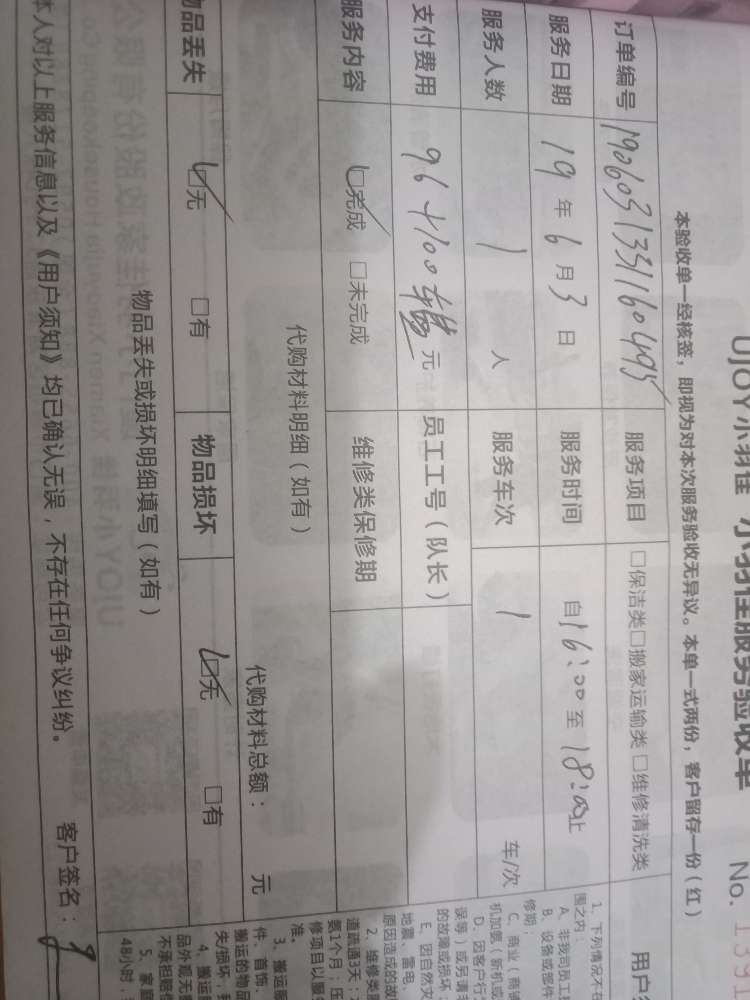 UJOY小羽佳 小羽佳服务验收单 No.
本验收单一经核签，即视为对本次服务验收无异议。本单一式两份，客户留存一份（红）
订单编号 1906031331160495 服务项目 □保洁类□搬家运输类 □维修清洗类
服务日期 19 年 6 月 3 日 服务时间 自 16:00 至 18:00 止
服务人数 1 人 服务车次 1 车/次
支付费用 96+100 元 员工工号（队长）
服务内容 ☑完成 □未完成 维修类保修期
代购材料明细（如有） 代购材料总额： 元
物品丢失 ☑无 □有 物品损坏 ☑无 □有
物品丢失或损坏明细填写（如有）
本人对以上服务信息以及《用户须知》均已确认无误，不存在任何争议纠纷。 客户签名：
用户
1、下列情况不
围之内：
A、非我司员工
B、设备或部件
修期；
C、商业（商铺
机加氨、新机或
D、因客户行
误等）或另请
的故障或损坏；
E、因自然灾
地震、雷电、
原因造成的故
2、维修类
道疏通3天；
氨1个月；压
修项目以服
准。
3、搬运
件、首饰、
搬运的物品
失/损坏，
4、搬运
品外观无
不承担赔
5、家庭
48小时，